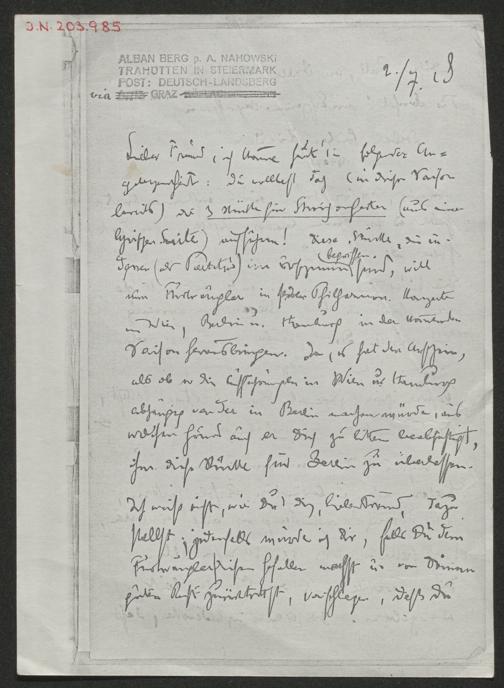 J.N. 203.985
ALBAN BERG p. A. NAHOWSKI
TRAHÜTTEN IN STEIERMARK
POST: DEUTSCH-LANDSBERG
via GRAZ
2./7. 28
Lieber Freund, ich komme heut in folgender An=
gelegenheit: Du wolltest ja (in dieser Saison
bereits) die 3 Stücke für Streichorchester (aus meiner
lyrischen Suite) aufführen! Diese Stücke, die in=
dessen (als Partitur) im Erscheinen begriffen sind, will
nun Furtwängler in seinen Philharmon. Konzerten
in Wien, Berlin u. Hamburg in der kommenden
Saison herausbringen. Ja, es hat den Anschein,
als ob er die Aufführungen in Wien u. Hamburg
abhängig von der in Berlin machen würde, aus
welchem Grund auch er Dich zu bitten beabsichtigt,
ihm diese Stücke für Berlin zu überlassen.
Ich weiß nicht, wie Du Dich, lieber Freund, dazu
stellst; jedenfalls würde ich Dir, falls Du dem
Furtwängler diesen Gefallen machst u. von Deinem
guten Recht zurücktrittst, vorschlagen, daß Du